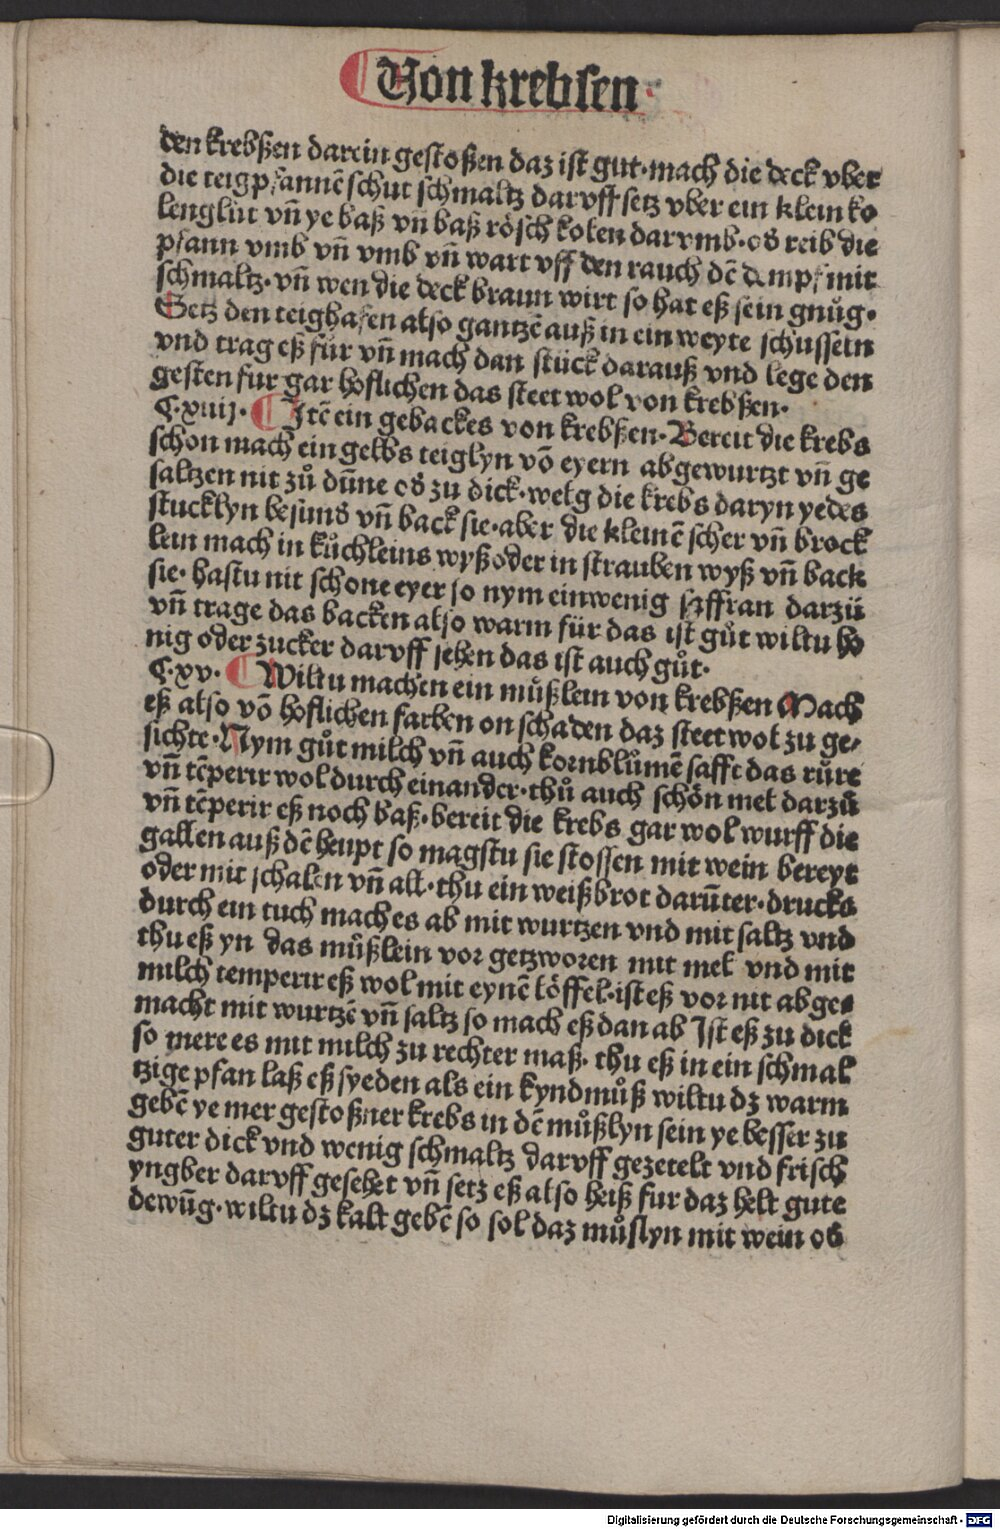 Von krebsen
den krebßen darein gestoßen daz ist gut·mach die deck vber
die teigpfannē schut schmaltz darvff setz vber ein klein ko
lenglüt vñ ye baß vñ baß rösch kolen darvmb·od reib die
pfann vmb vñ vmb vñ wart vff den rauch dē dampf mit
schmaltz·vñ wen die deck braun wirt so hat eß sein gnůg·
Setz den teighafen also gantzē auß in ein weyte schusseln
vnd trag eß für vñ mach dan stück darauß vnd lege den
gesten fur gar hoflichen das steet wol von krebßen·
C·xiiij· Itē ein gebackes von krebßen·Bereit die krebs
schon mach ein gelbs teiglyn vō eyern abgewurtzt vñ ge
saltzen nit zů dūne od zu dick·welg die krebs daryn yedes
stucklyn besūnd vñ back sie·aber die kleinē scher vñ brock
lein mach in kůchleins wyß oder in strauben wyß vñ back
sie· hastu nit schone eyer so nym einwenig saffran darzů
vñ trage das backen also warm für das ist gůt wiltu ho
nig oder zucker darvff sehen das ist auch gůt·
C·xv· Wiltu machen ein můßlein von krebßen Mach
eß also vō hoflichen farben on schaden daz steet wol zu ge/
sichte·Nym gůt milch vñ auch kornblůmē safft das růre
vñ tēperir wol durch einander·thů auch schön mel darzů
vñ tēperir eß noch baß·bereit die krebs gar wol wurff die
gallen auß dē heupt so magstu sie stossen mit wein bereyt
oder mit schalen vñ all·thu ein weißbrot darūter·drucks
durch ein tuch mach es ab mit wurtzen vnd mit saltz vnd
thu eß yn das můßlein vor getzworen mit mel vnd mit
milch temperir eß wol mit eynē löffel·ist eß vor nit abge/
macht mit wurtzē vñ saltz so mach eß dan ab Ist eß zu dick
so mere es mit milch zu rechter maß· thu eß in ein schmal
tzige pfan laß eß syeden als ein kyndmůß wiltu dz warm
gebē ye mer gestoßner krebs in dē můßlyn sein ye besser zu
guter dick vnd wenig schmaltz darvff gezetelt vnd frisch
yngber darvff gesehet vñ setz eß also heiß fur daz helt gute
dewūg·wiltu dz kalt gebē so sol daz můslyn mit wein od
Digitalisierung gefördert durch die Deutsche Forschungsgemeinschaft - DFG